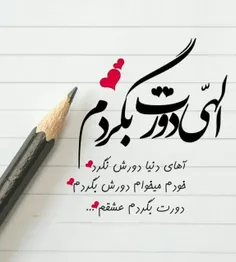 الهی دورت بگردم
آهای دنیا دورش نگرد
خودم میخوام دورش بگردم
دورت بگردم عشقم...